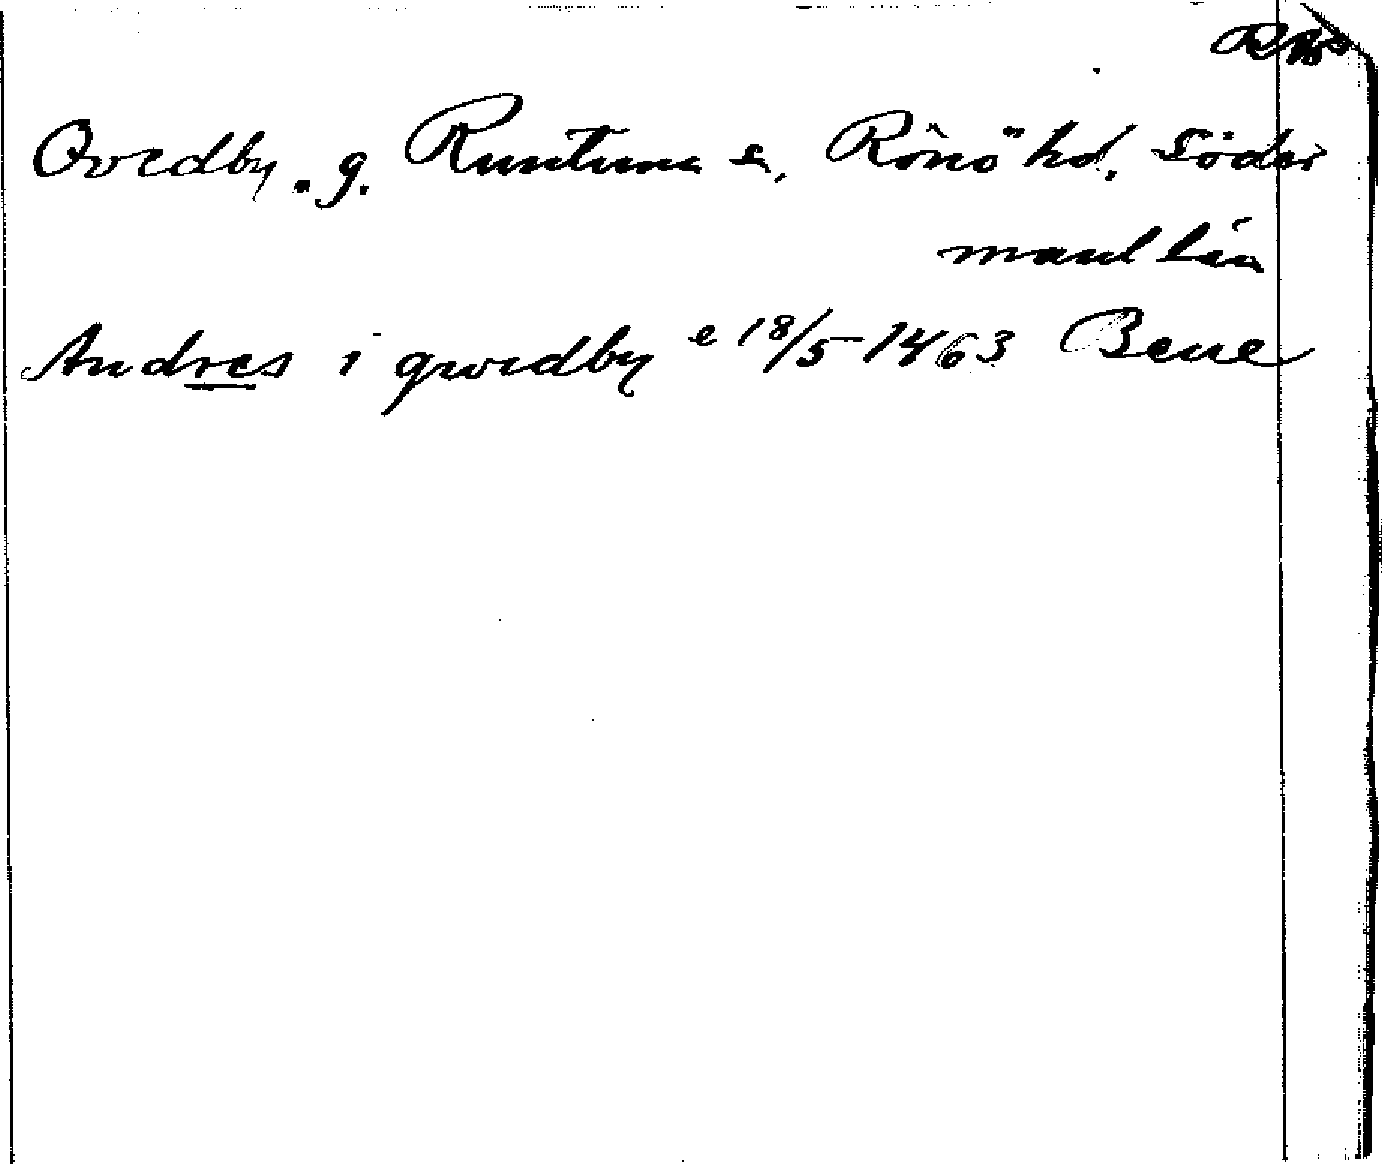 Qvedby. g. Runtuna s, Rönö hd. Söder
manl län
Andres i qwedby e 18/5 1463 Bene